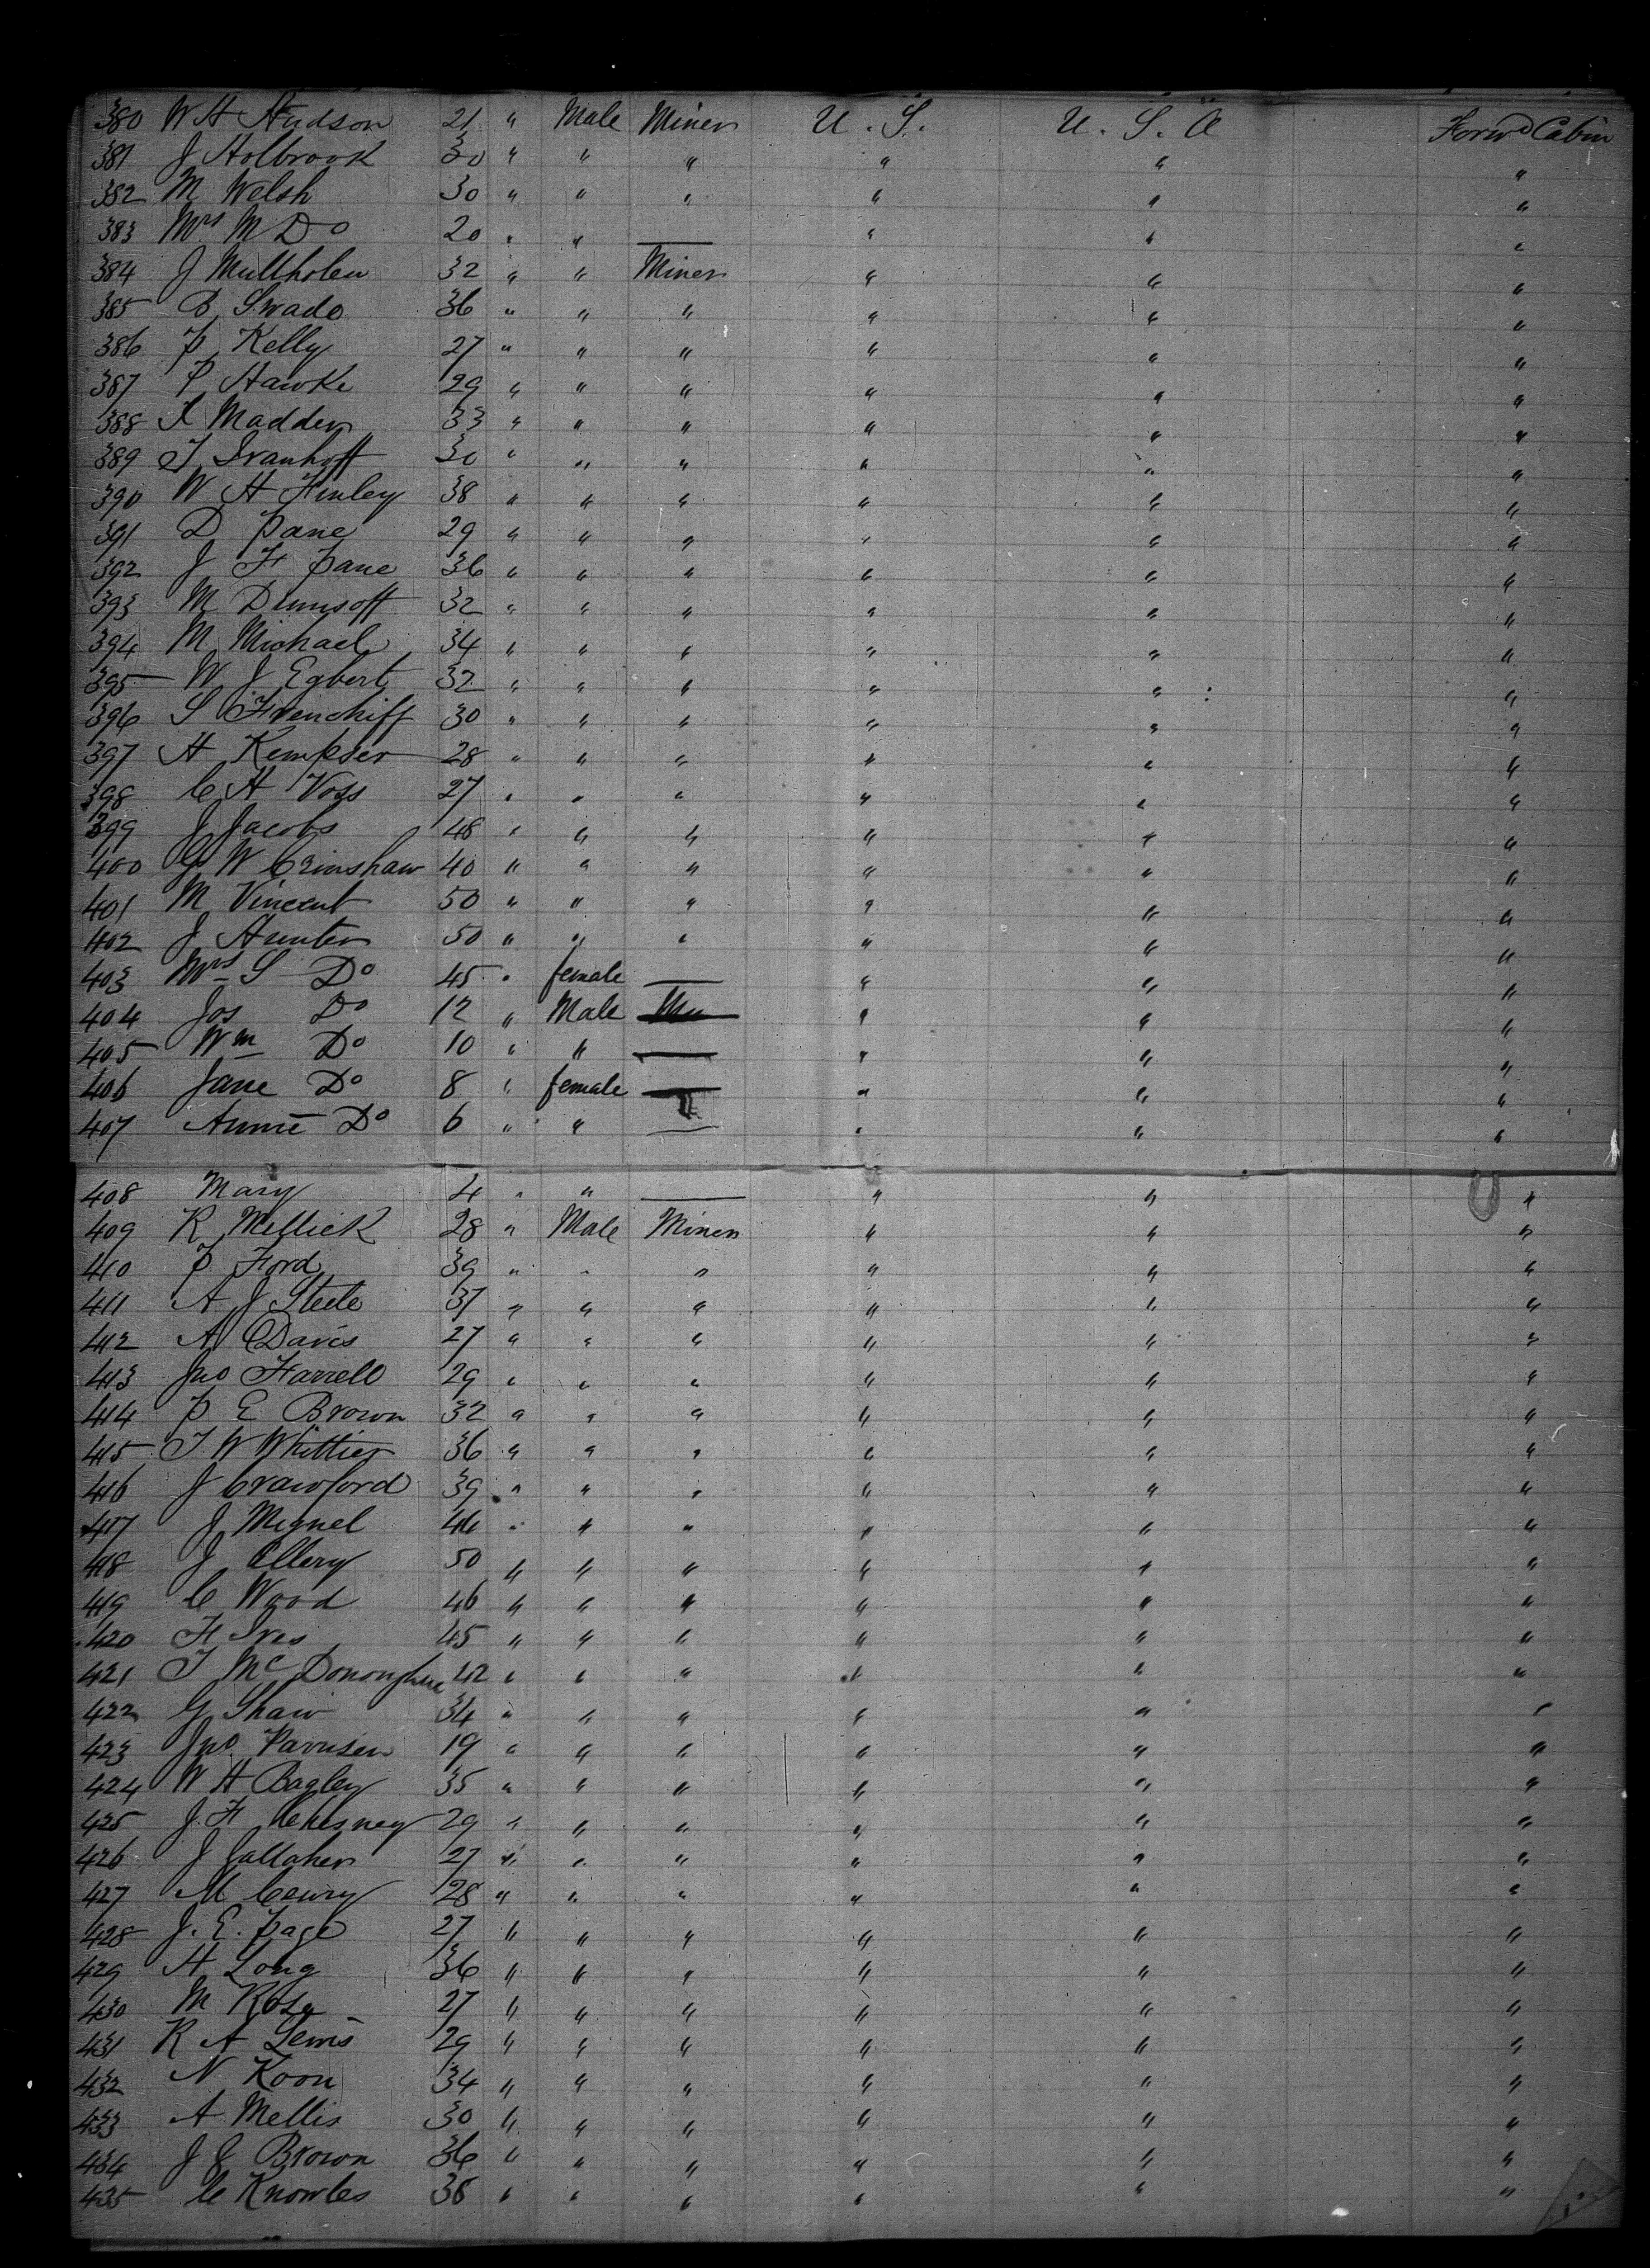 380 W H Hudson 21 " Male Miner U. S. U. S. A Forwd Cabin
381 J Holbrook 30 " " " " " "
382 M Welsh 30 " " " " " "
383 Mrs M Do 20 " " — " " "
384 J Mullholen 32 " " Miner " " "
385 B Swado 36 " " " " " "
386 P Kelly 27 " " " " " "
387 P Hawke 29 " " " " " "
388 K Madden 33 " " " " " "
389 T Ivanhoff 30 " " " " " "
390 W H Finley 38 " " " " " "
391 D Pane 29 " " " " " "
392 J F Pane 36 " " " " " "
393 M Dumsoff 32 " " " " " "
394 M Michael 34 " " " " " "
395 W J Egbert 32 " " " " " "
396 S Frenchiff 30 " " " " " "
397 H Kempser 28 " " " " " "
398 C H Voss 27 " " " " " "
399 J Jacobs 48 " " " " " "
400 G W Crimshaw 40 " " " " " "
401 M Vincent 50 " " " " " "
402 J Hunter 50 " " " " " "
403 Mrs S Do 45 " female — " " "
404 Jos Do 12 " Male — " " "
405 Wm Do 10 " " — " " "
406 Jane Do 8 " female — " " "
407 Annie Do 6 " " — " " "
408 Mary 4 " " — " " "
409 R Mellick 28 " Male Miner " " "
410 P Ford 39 " " " " " "
411 A J Steele 37 " " " " " "
412 A Davis 27 " " " " " "
413 Jno Farrell 29 " " " " " "
414 P E Brown 32 " " " " " "
415 T W Whittier 36 " " " " " "
416 J Crawford 39 " " " " " "
417 J Mignel 46 " " " " " "
418 J Ellery 50 " " " " " "
419 C Wood 46 " " " " " "
420 H Ives 45 " " " " " "
421 T McDonoughue 42 " " " " " "
422 G Shaw 34 " " " " " "
423 Jno Parrisen 19 " " " " " "
424 W H Bagley 35 " " " " " "
425 J. H Chesney 29 " " " " " "
426 J Gallaher 27 " " " " " "
427 M 28 " " " " " "
428 J. E. Page 27 " " " " " "
429 H Long 36 " " " " " "
430 M Rose 27 " " " " " "
431 R A Lewis 29 " " " " " "
432 N Koon 34 " " " " " "
433 A Mellis 30 " " " " " "
434 J G Brown 36 " " " " " "
435 C Knowles 38 " " " " " "